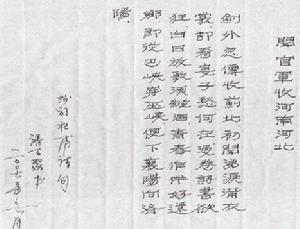 聞官軍收河南河北
劍外忽傳收薊北初聞涕淚滿衣
裳卻看妻子愁何在漫卷詩書欲
狂白日放歌須縱酒青春作伴好還
鄉即從巴峽穿巫峽便下襄陽向洛
陽
杜甫詩句
書
二〇〇七年六月